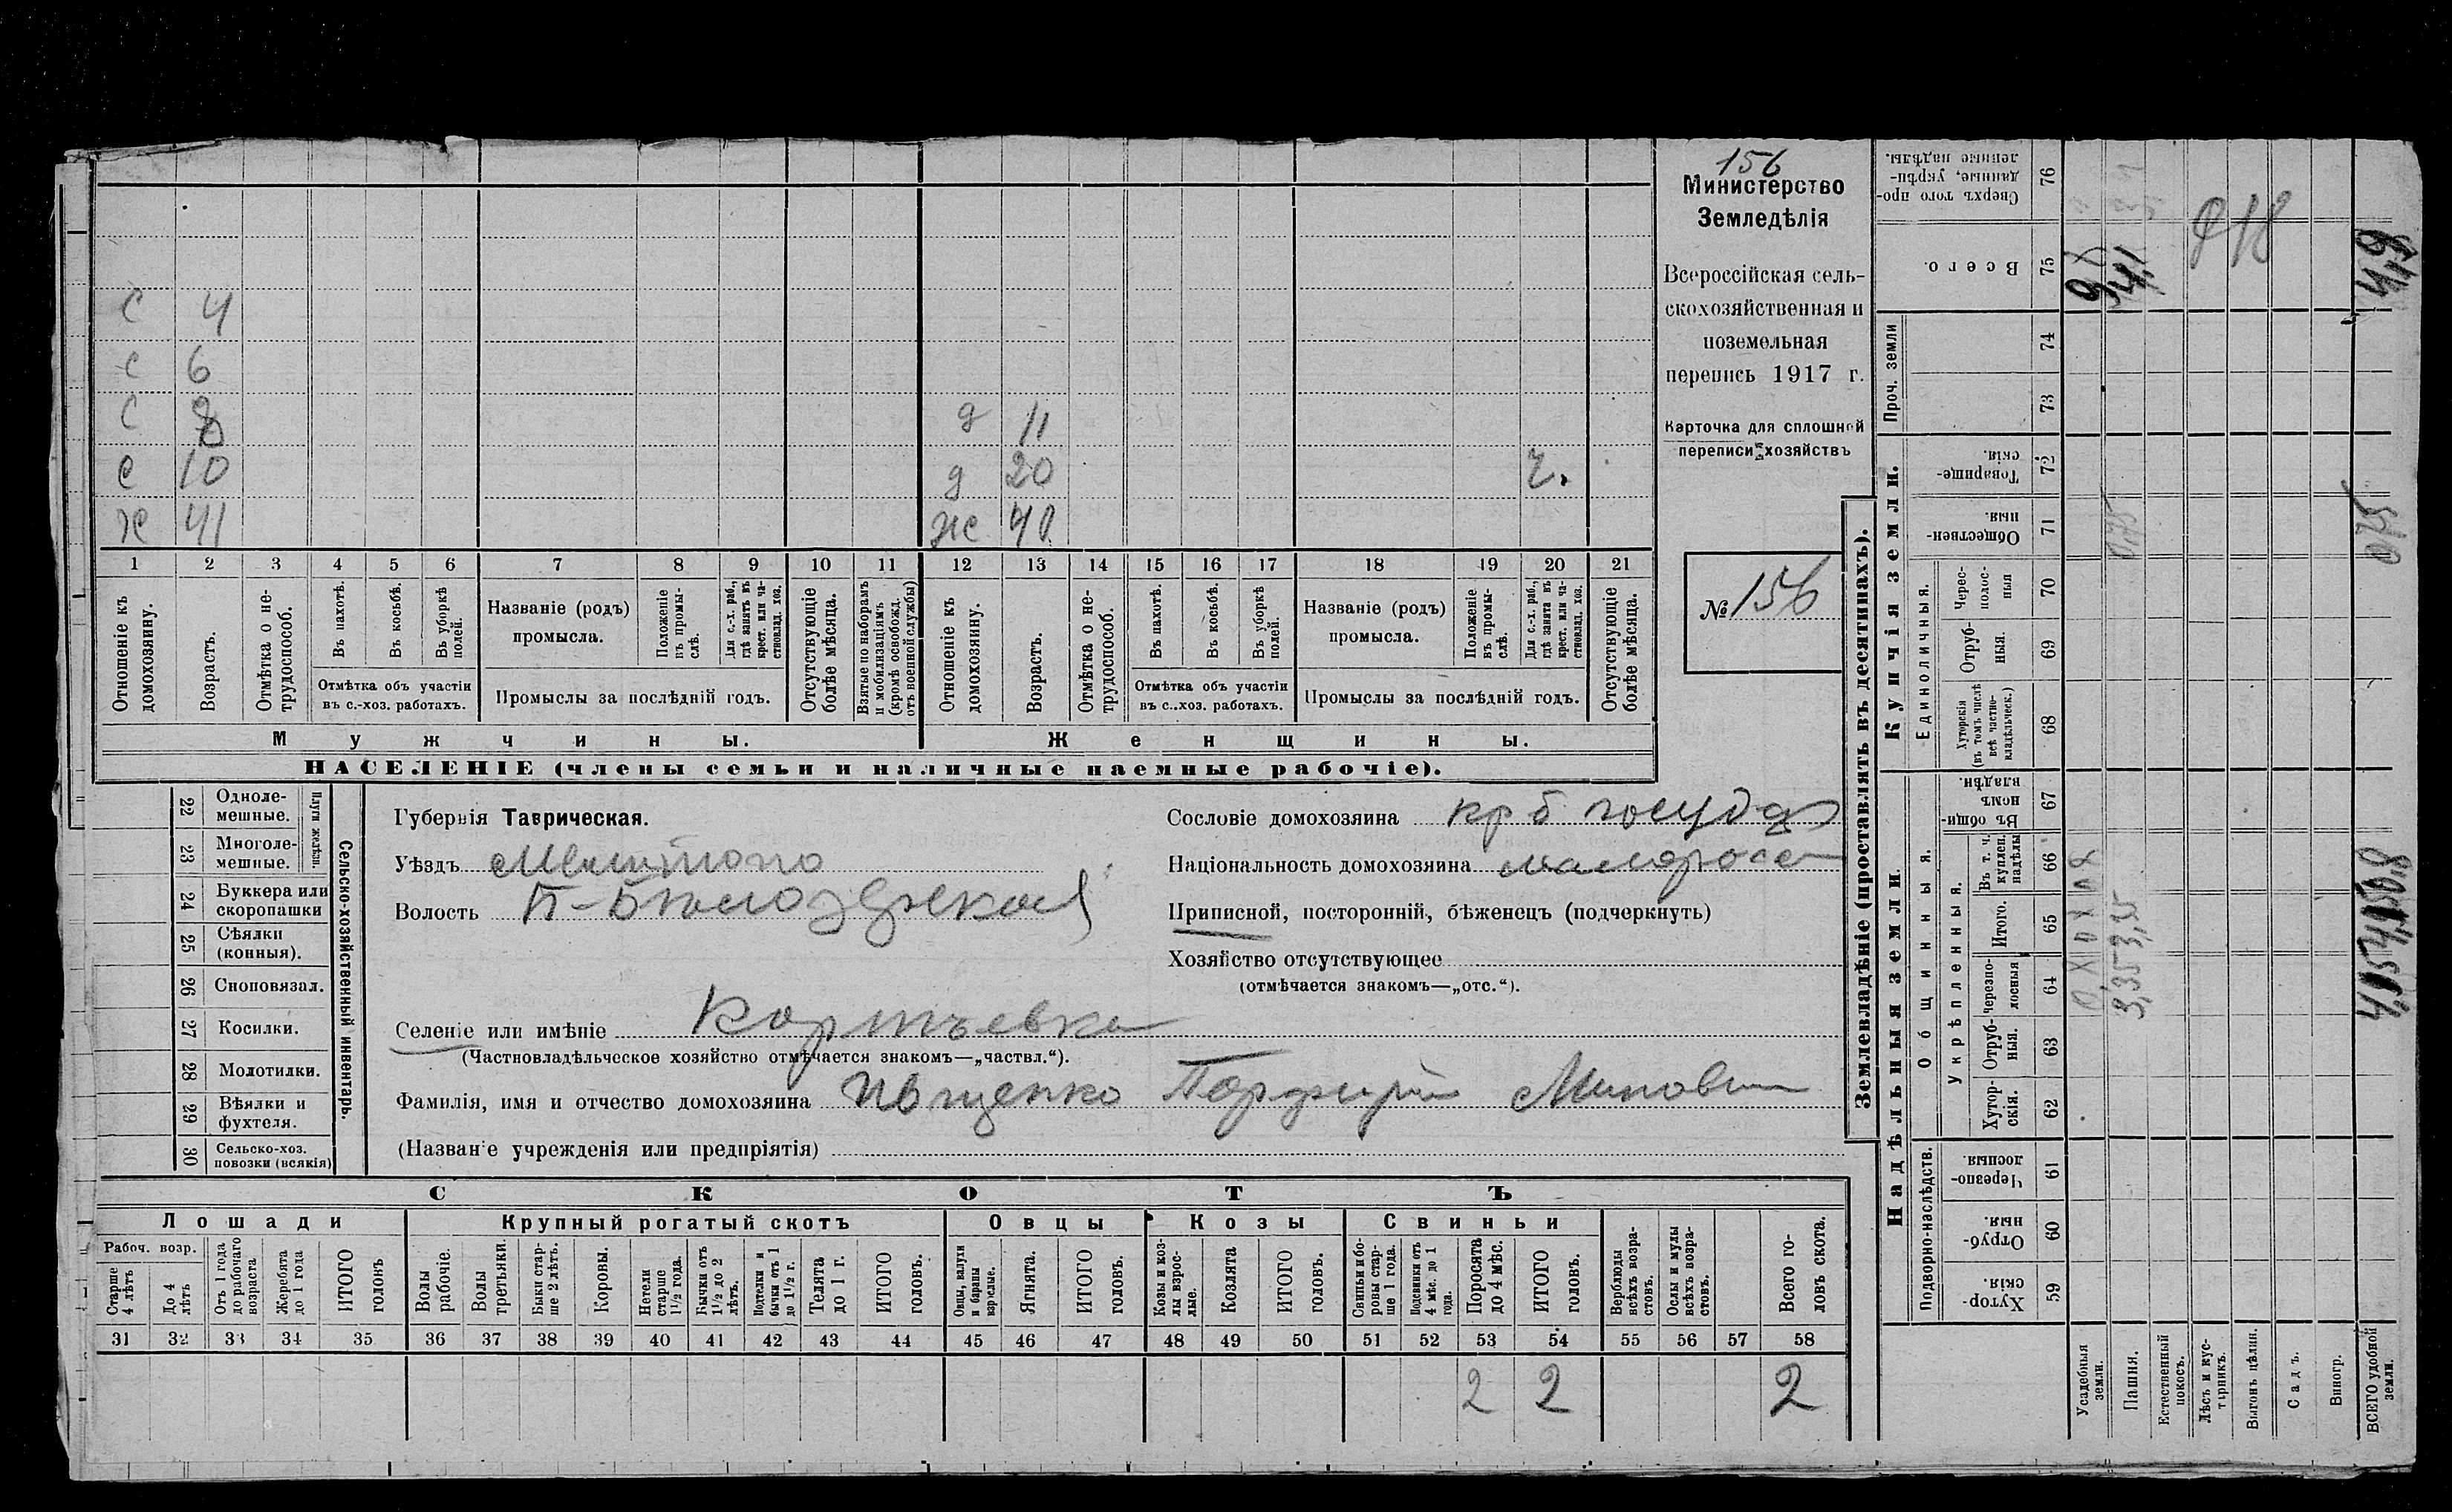 156
Министерство
Земледѣлія
Всероссійская сель-
скохозяйственная и
поземельная
перепись 1917 г.
Карточка для сплошной
переписи хозяйствъ
№ 156
с 4
с 6
с 8 д 11
с 10 д 20 г.
х 41 ж 40
1 2 3 4 5 6 7 8 9 10 11 12 13 14 15 16 17 18 19 20 21
Отношеніе къ домохозяину.
Возрастъ.
Отмѣтка о не-трудоспособ.
Въ пахотѣ.
Въ косьбѣ.
Въ уборкѣ полей.
Отмѣтка объ участіи въ с.-хоз. работахъ.
Названіе (родъ) промысла.
Положеніе въ промы-слѣ.
Для с.-х. раб., гдѣ занятъ въ крест. или ча-стновлад. хоз.
Промыслы за послѣдній годъ.
Отсутствующіе болѣе мѣсяца.
Взятые по наборамъ и мобилизаціямъ (кромѣ освобожд. отъ военной службы)
Отношеніе къ домохозяину.
Возрастъ.
Отмѣтка о не-трудоспособ.
Въ пахотѣ.
Въ косьбѣ.
Въ уборкѣ полей.
Отмѣтка объ участіи въ с.-хоз. работахъ.
Названіе (родъ) промысла.
Положеніе въ промы-слѣ.
Для с.-х. раб., гдѣ занята въ крест. или ча-стновлад. хоз.
Промыслы за послѣдній годъ.
Отсутствующіе болѣе мѣсяца.
Мужчины.
Женщины.
НАСЕЛЕНІЕ (члены семьи и наличные наемные рабочіе).
Сельско-хозяйственный инвентарь.
Плуги желѣзн.
22 Одноле-мешные.
23 Многоле-мешные.
24 Буккера или скоропашки
25 Сѣялки (конныя).
26 Сноповязал.
27 Косилки.
28 Молотилки.
29 Вѣялки и фухтеля.
30 Сельско-хоз. повозки (всякія)
Губернія Таврическая.
Уѣздъ Мелитопо
Волость П-Бѣлозерская
Селеніе или имѣніе
(Частновладѣльческое хозяйство отмѣчается знакомъ—„частвл.“).
Фамилія, имя и отчество домохозяина Ивщенко Порфирій
(Названіе учрежденія или предпріятія)
Сословіе домохозяина кр б государ
Національность домохозяина малоросс
Приписной, посторонній, бѣженецъ (подчеркнуть)
Хозяйство отсутствующее
(отмѣчается знакомъ—„отс.“).
СКОТЪ
Лошади
Крупный рогатый скотъ
Овцы
Козы
Свиньи
Рабоч. возр.
Старше 4 лѣтъ
До 4 лѣтъ
Отъ 1 года до рабочаго возраста
Жеребята до 1 года
ИТОГО головъ
Волы рабочіе.
Волы третьяки.
Быки стар-ше 2 лѣтъ.
Коровы.
Нетели старше 1½ года.
Бычки отъ 1½ до 2 лѣтъ.
Подтелки и бычки отъ 1 до 1½ г.
Телята до 1 г.
ИТОГО головъ.
Овцы, валухи и бараны взрослые.
Ягнята.
ИТОГО головъ.
Козы и коз-лы взрос-лые.
Козлята
ИТОГО головъ.
Свиньи и бо-ровы стар-ше 1 года.
Подсвинки отъ 4 мѣс. до 1 года.
Поросята до 4 мѣс.
ИТОГО головъ.
Верблюды всѣхъ возра-стовъ.
Ослы и мулы всѣхъ возра-стовъ.
Всего го-ловъ скота.
31 32 33 34 35 36 37 38 39 40 41 42 43 44 45 46 47 48 49 50 51 52 53 54 55 56 57 58
2 2 2
Землевладѣніе (проставлять въ десятинахъ).
Надѣльныя земли.
Купчія земли.
Проч. земли
Подворно-наслѣдств.
Общинныя.
Укрѣпленныя.
Единоличныя.
Сверхъ того про-данные, укрѣп-ленные надѣлы. 76
Всего. 75
74
73
Товарище-скія. 72
Обществен-ныя. 71
Черес-полос-ныя 70
Отруб-ныя. 69
Хуторскія (въ томъ числѣ всѣ частно-владѣльческ.) 68
Въ общи-номъ владѣн. 67
Въ т. ч. куплен. надѣлы 66
Итого. 65
Черезпо-лосныя 64
Отруб-ныя. 63
Хутор-скія. 62
Черезпо-лосныя. 61
Отруб-ныя. 60
Хутор-скія. 59
Усадебныя земли.
Пашня.
Естественный покосъ.
Лѣсъ и кус-тарникъ.
Выгонъ цѣлин.
Садъ.
Виногр.
ВСЕГО удобной земли.
0,75
075
4,9